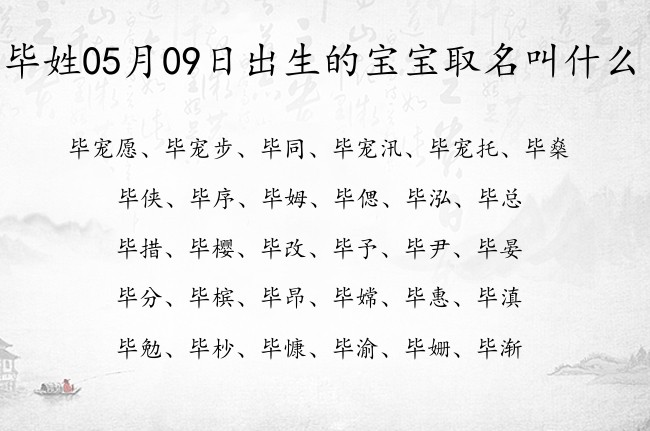 毕姓05月09日出生的宝宝取名叫什么
毕宠愿、毕宠步、毕同、毕宠汛、毕宠托、毕燊
毕侠、毕序、毕姆、毕偲、毕泓、毕总
毕措、毕樱、毕改、毕予、毕尹、毕晏
毕分、毕槟、毕昂、毕嫦、毕惠、毕滇
毕勉、毕杪、毕慷、毕渝、毕姗、毕渐